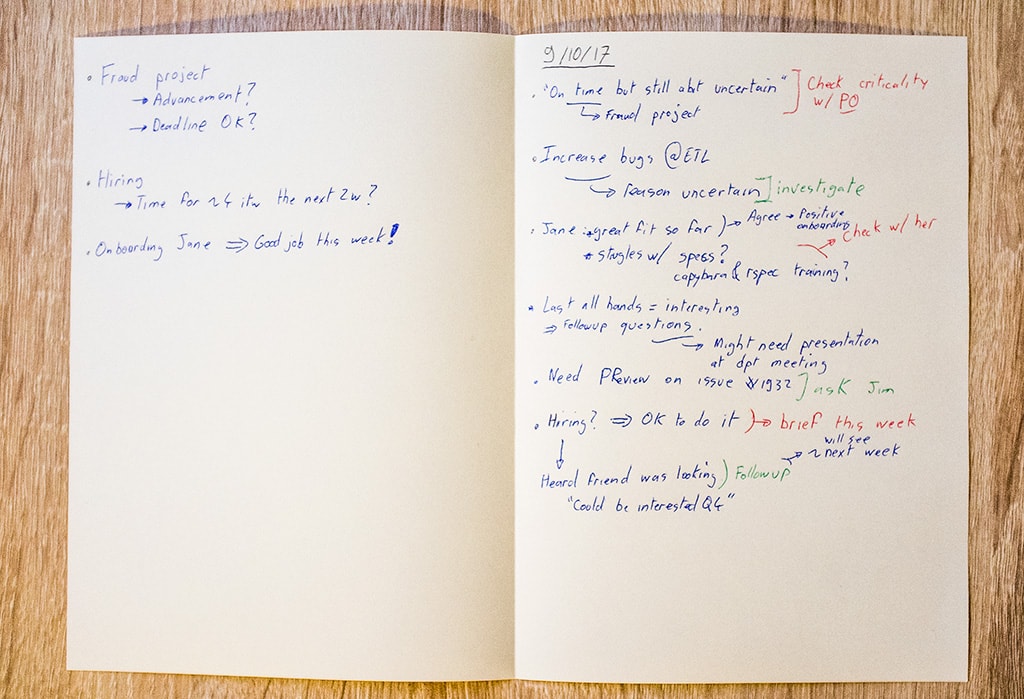 • Fraud project
→ Advancement?
→ Deadline OK?
• Hiring
→ Time for ~4 itw the next 2w?
• Onboarding Jane ⇒ Good job this week!
9/10/17
• "On time but still abt uncertain" ] Check criticality
w/ PO
↳ Fraud project
• Increase bugs @ETL
↳ reason uncertain ] investigate
• Jane : great fit so far ) → Agree → Positive
onboarding
Check w/ her
* strugles w/ specs?
capybara & rspec training?
• Last all hands = interesting
⇒ Followup questions.
→ Might need presentation
at dpt meeting
• Need PReview on issue 1932 ] ask Jim
• Hiring? ⇒ OK to do it ) → brief this week
will see
→ ~ next week
↓
Heard friend was looking ) Followup
"Could be interested Q4"